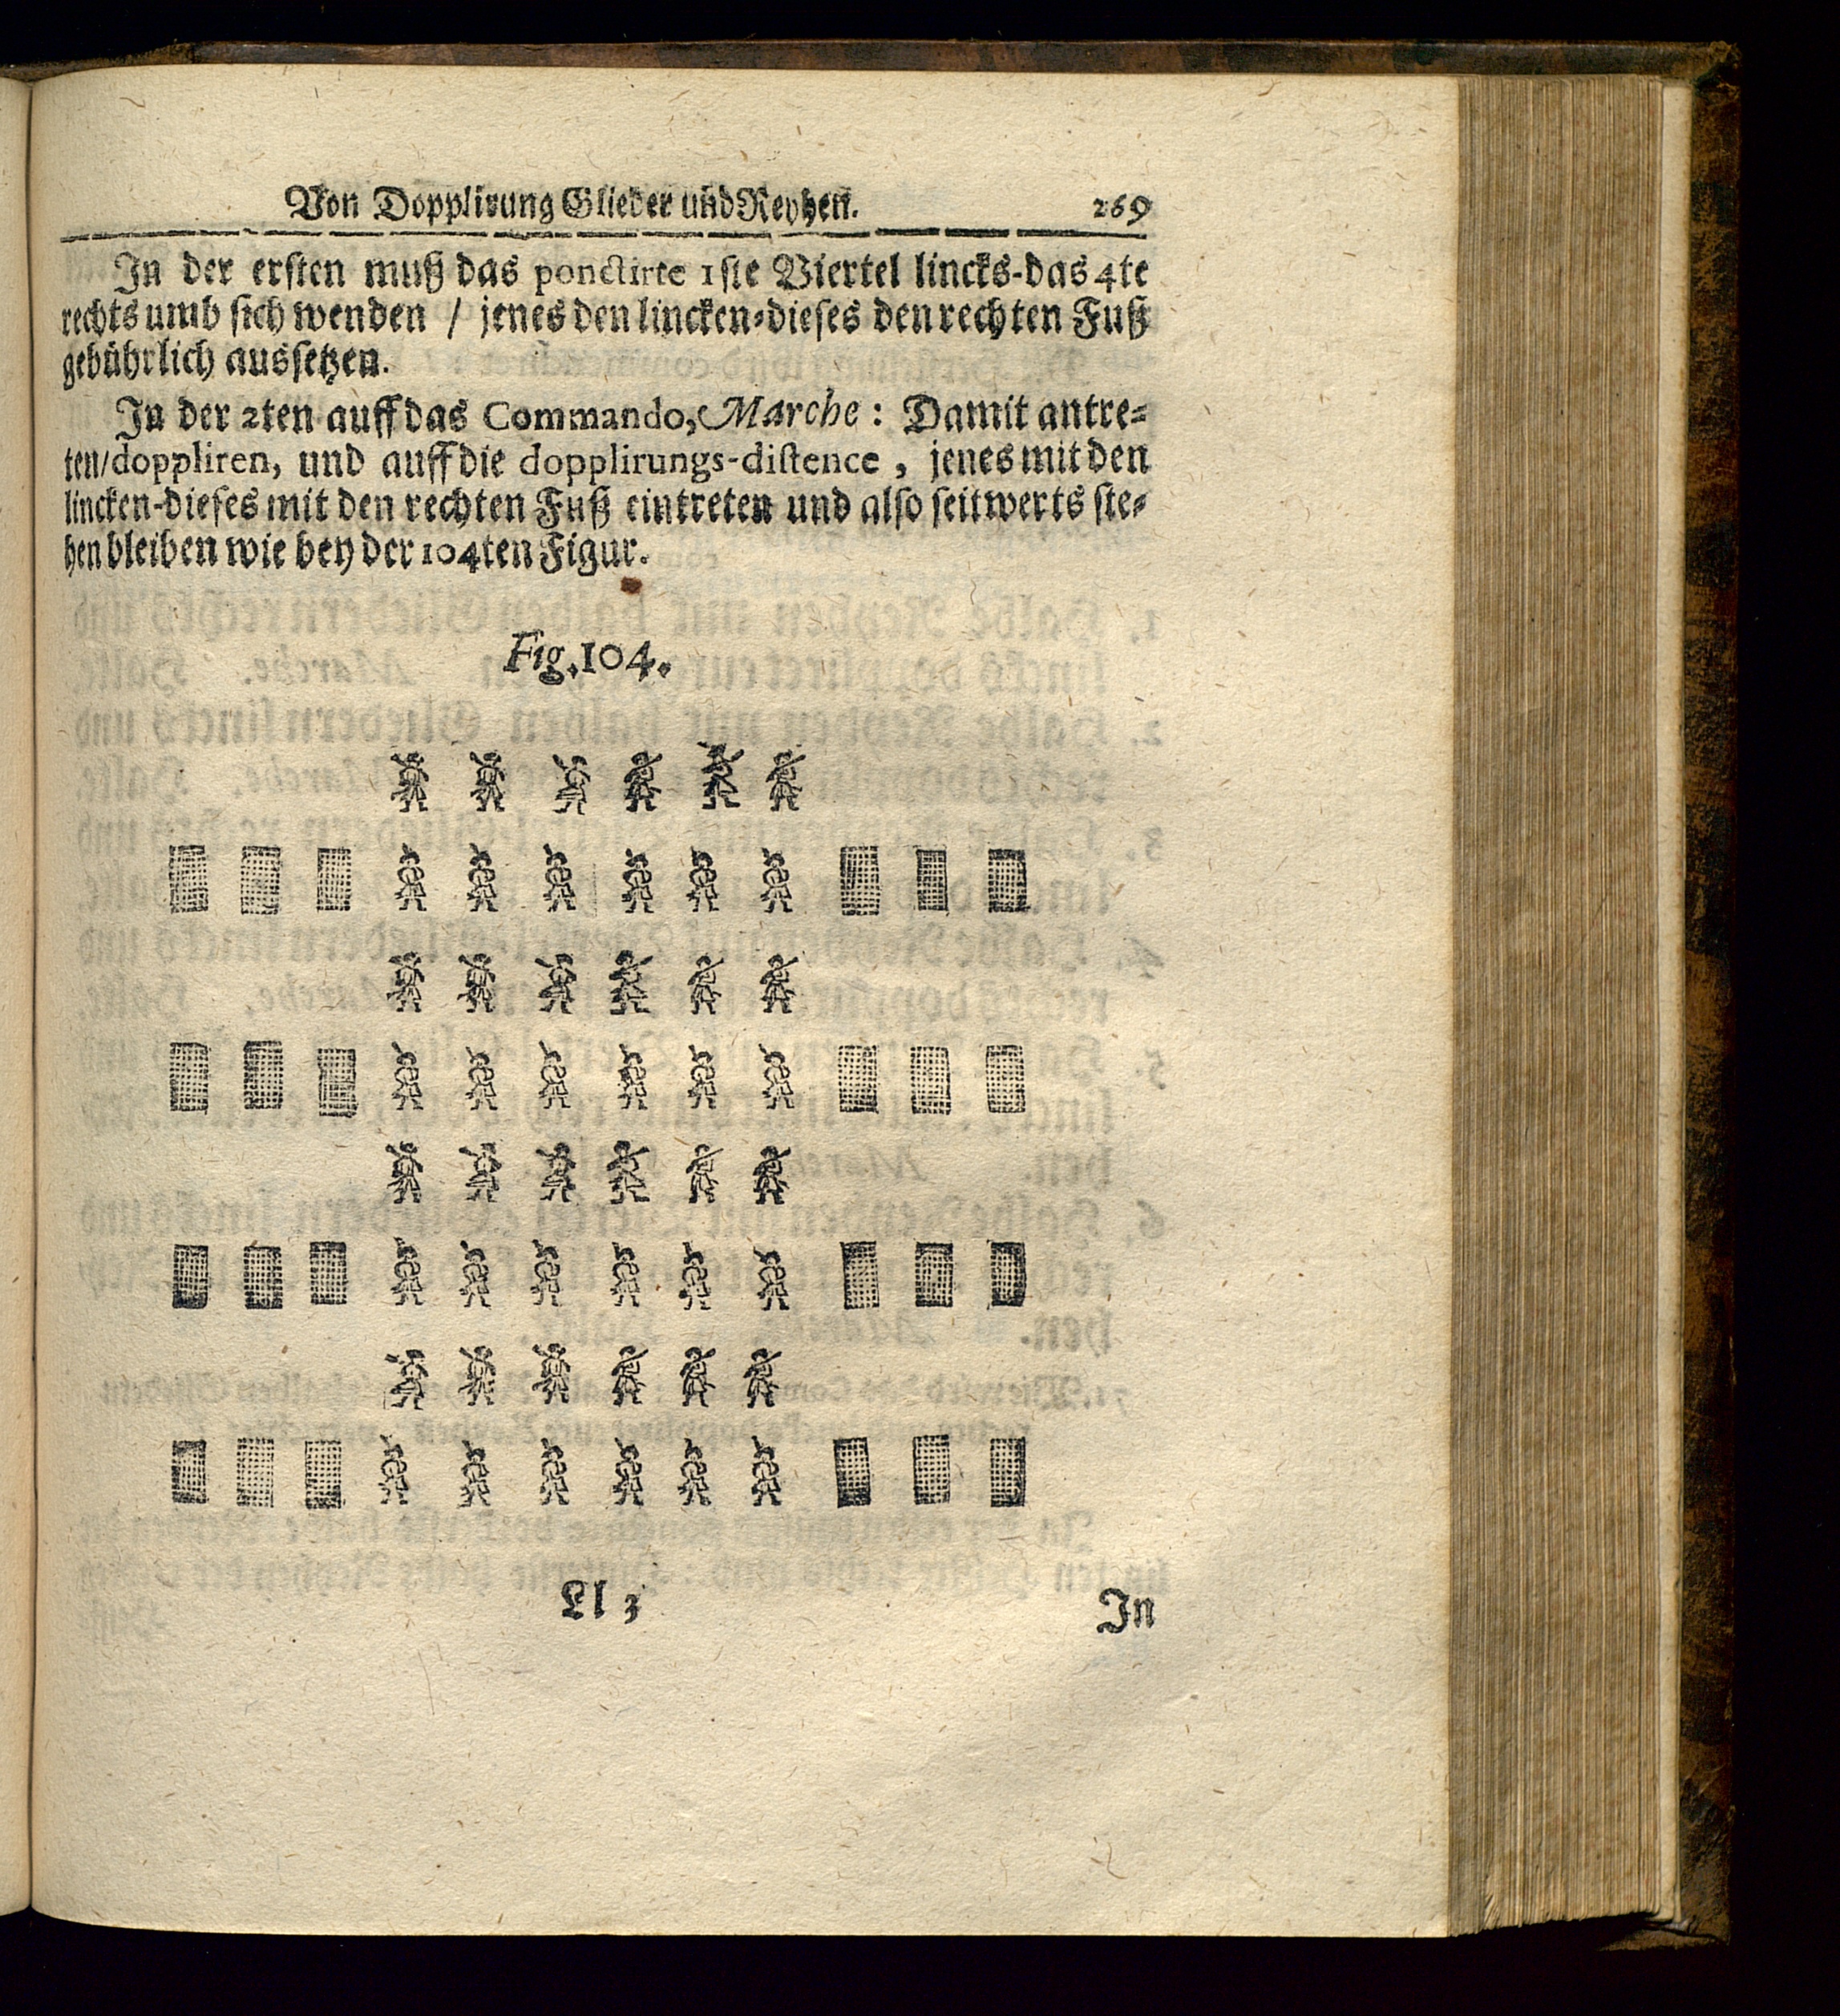 Von Dopplirung Glieder und Reyhen. 269
In der ersten muß das ponctirte 1ste Viertel lincks-das 4te
rechts umb sich wenden / jenes den lincken-dieses den rechten Fuß
gebührlich aussetzen.
In der 2ten auff das Commando, Marche: Damit antre-
ten/doppliren, und auff die dopplirungs-distence, jenes mit den
lincken-dieses mit den rechten Fuß eintreten und also seitwerts ste-
hen bleiben wie bey der 104ten Figur.
Fig. 104.
Ll 3 In